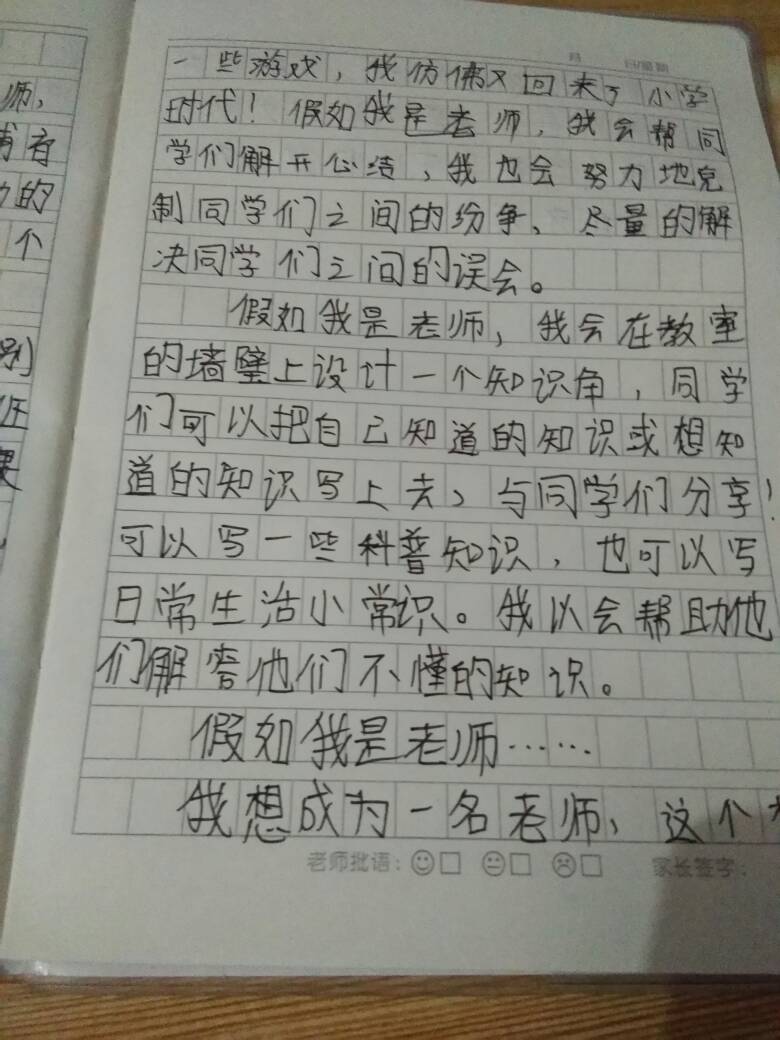 师,
的
个
一些游戏,我仿佛又回来了小学
时代!假如我是老师,我会帮同
学们解开心结,我也会努力地克
制同学们之间的纷争、尽量的解
决同学们之间的误会。
假如我是老师,我会在教室
的墙壁上设计一个知识角,同学
们可以把自己知道的知识或想知
道的知识写上去,与同学们分享!
可以写一些科普知识,也可以写
日常生活小常识。我以会帮助他
们解答他们不懂的知识。
假如我是老师……
我想成为一名老师,这个
老师批语: 家长签字: